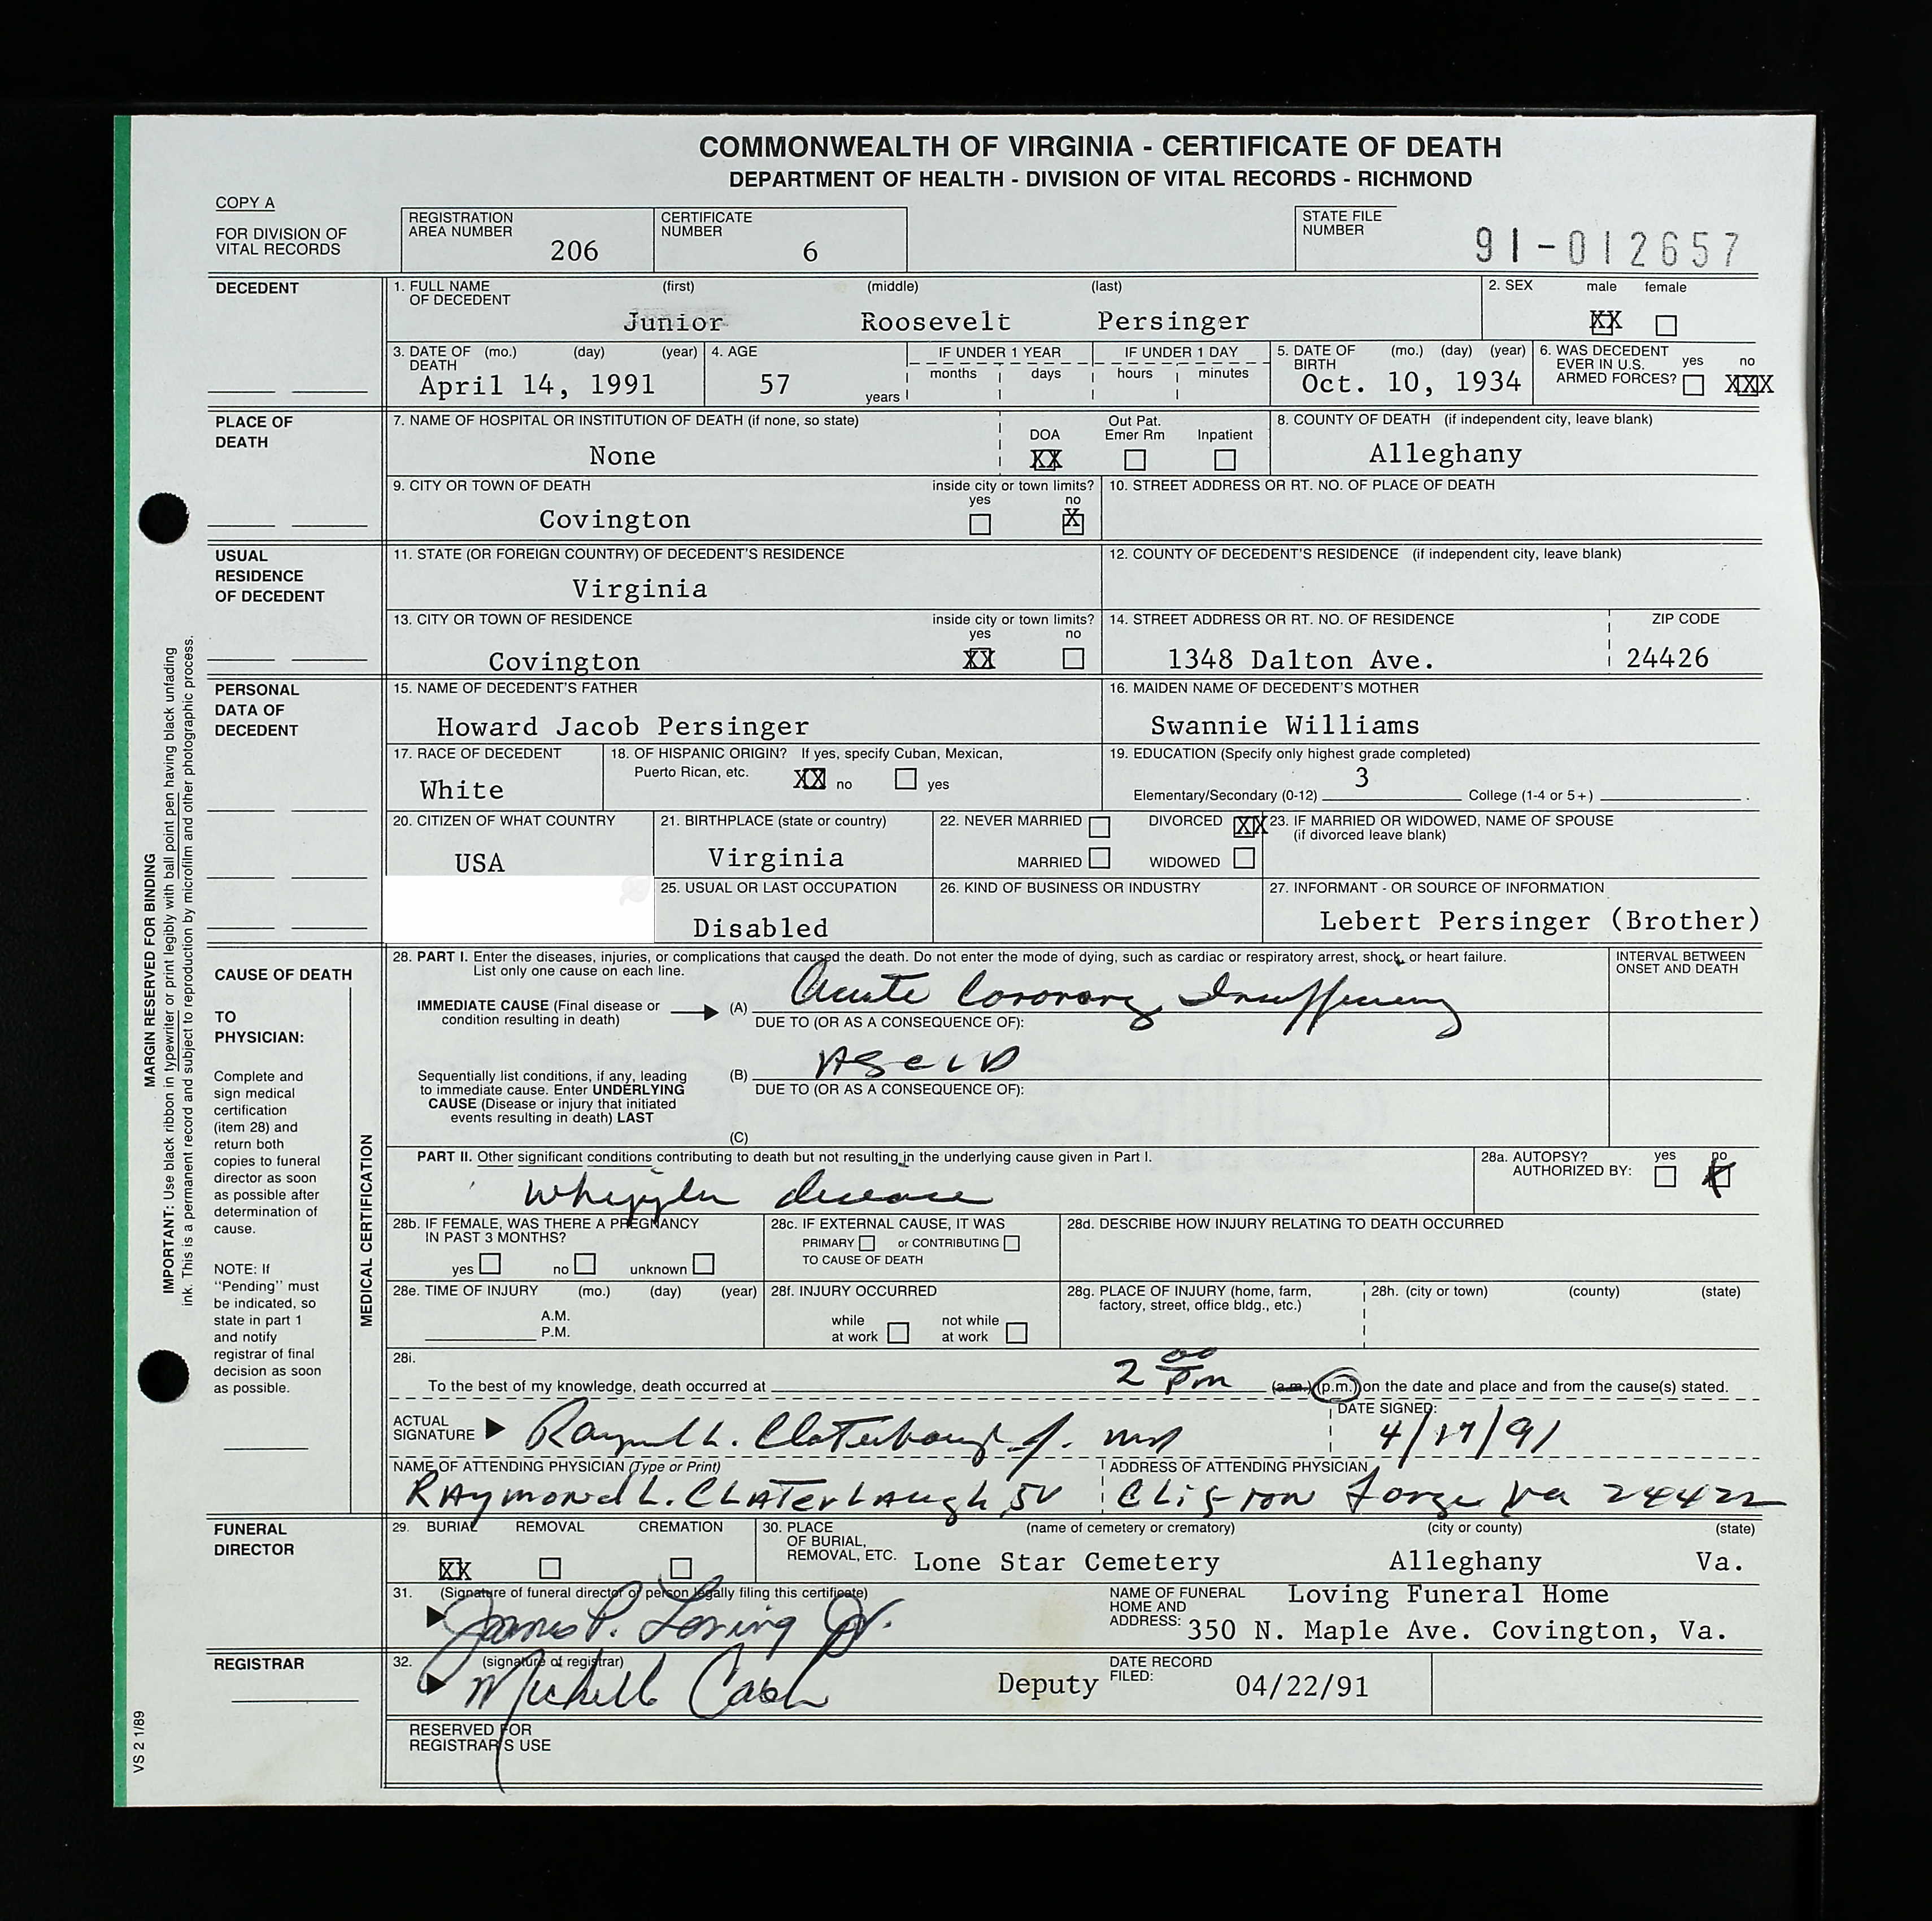 COMMONWEALTH OF VIRGINIA - CERTIFICATE OF DEATH
DEPARTMENT OF HEALTH - DIVISION OF VITAL RECORDS - RICHMOND
COPY A
FOR DIVISION OF
VITAL RECORDS
REGISTRATION
AREA NUMBER
206
CERTIFICATE
NUMBER
6
STATE FILE
NUMBER
91-012657
DECEDENT
1. FULL NAME
OF DECEDENT
(first) (middle) (last)
Junior Roosevelt Persinger
2. SEX male female
XX
3. DATE OF (mo.) (day) (year)
DEATH
April 14, 1991
4. AGE
57 years
IF UNDER 1 YEAR
months days
IF UNDER 1 DAY
hours minutes
5. DATE OF (mo.) (day) (year)
BIRTH
Oct. 10, 1934
6. WAS DECEDENT
EVER IN U.S.
ARMED FORCES?
yes no
XXX
PLACE OF
DEATH
7. NAME OF HOSPITAL OR INSTITUTION OF DEATH (if none, so state)
None
DOA
XX
Out Pat.
Emer Rm
Inpatient
8. COUNTY OF DEATH (if independent city, leave blank)
Alleghany
9. CITY OR TOWN OF DEATH
Covington
inside city or town limits?
yes no
X
10. STREET ADDRESS OR RT. NO. OF PLACE OF DEATH
USUAL
RESIDENCE
OF DECEDENT
11. STATE (OR FOREIGN COUNTRY) OF DECEDENT'S RESIDENCE
Virginia
12. COUNTY OF DECEDENT'S RESIDENCE (if independent city, leave blank)
13. CITY OR TOWN OF RESIDENCE
Covington
inside city or town limits?
yes no
XX
14. STREET ADDRESS OR RT. NO. OF RESIDENCE
1348 Dalton Ave.
ZIP CODE
24426
PERSONAL
DATA OF
DECEDENT
15. NAME OF DECEDENT'S FATHER
Howard Jacob Persinger
16. MAIDEN NAME OF DECEDENT'S MOTHER
Swannie Williams
17. RACE OF DECEDENT
White
18. OF HISPANIC ORIGIN? If yes, specify Cuban, Mexican,
Puerto Rican, etc. XX no yes
19. EDUCATION (Specify only highest grade completed)
Elementary/Secondary (0-12) 3 College (1-4 or 5+)
20. CITIZEN OF WHAT COUNTRY
USA
21. BIRTHPLACE (state or country)
Virginia
22. NEVER MARRIED DIVORCED XX
MARRIED WIDOWED
23. IF MARRIED OR WIDOWED, NAME OF SPOUSE
(if divorced leave blank)
25. USUAL OR LAST OCCUPATION
Disabled
26. KIND OF BUSINESS OR INDUSTRY
27. INFORMANT - OR SOURCE OF INFORMATION
Lebert Persinger (Brother)
CAUSE OF DEATH
TO
PHYSICIAN:
Complete and
sign medical
certification
(item 28) and
return both
copies to funeral
director as soon
as possible after
determination of
cause.
NOTE: If
"Pending" must
be indicated, so
state in part 1
and notify
registrar of final
decision as soon
as possible.
MEDICAL CERTIFICATION
28. PART I. Enter the diseases, injuries, or complications that caused the death. Do not enter the mode of dying, such as cardiac or respiratory arrest, shock, or heart failure.
List only one cause on each line.
INTERVAL BETWEEN
ONSET AND DEATH
IMMEDIATE CAUSE (Final disease or
condition resulting in death)
(A) Acute Coronary Insufficiency
DUE TO (OR AS A CONSEQUENCE OF):
Sequentially list conditions, if any, leading
to immediate cause. Enter UNDERLYING
CAUSE (Disease or injury that initiated
events resulting in death) LAST
(B)
DUE TO (OR AS A CONSEQUENCE OF):
(C)
PART II. Other significant conditions contributing to death but not resulting in the underlying cause given in Part I.
Whipples disease
28a. AUTOPSY?
AUTHORIZED BY:
yes no
X
28b. IF FEMALE, WAS THERE A PREGNANCY
IN PAST 3 MONTHS?
yes no unknown
28c. IF EXTERNAL CAUSE, IT WAS
PRIMARY or CONTRIBUTING
TO CAUSE OF DEATH
28d. DESCRIBE HOW INJURY RELATING TO DEATH OCCURRED
28e. TIME OF INJURY (mo.) (day) (year)
A.M.
P.M.
28f. INJURY OCCURRED
while
at work
not while
at work
28g. PLACE OF INJURY (home, farm,
factory, street, office bldg., etc.)
28h. (city or town) (county) (state)
28i.
To the best of my knowledge, death occurred at 2 00 pm (a.m.) (p.m.) on the date and place and from the cause(s) stated.
ACTUAL
SIGNATURE
Raymond L. Claterbaugh Jr. MD
DATE SIGNED:
4/17/91
NAME OF ATTENDING PHYSICIAN (Type or Print)
Raymond L. Claterbaugh, Jr
ADDRESS OF ATTENDING PHYSICIAN
Clifton Forge Va 24422
FUNERAL
DIRECTOR
29. BURIAL REMOVAL CREMATION
XX
30. PLACE
OF BURIAL,
REMOVAL, ETC.
(name of cemetery or crematory) (city or county) (state)
Lone Star Cemetery Alleghany Va.
31. (Signature of funeral director or person legally filing this certificate)
James P. Loving Jr.
NAME OF FUNERAL
HOME AND
ADDRESS:
Loving Funeral Home
350 N. Maple Ave. Covington, Va.
REGISTRAR
32. (signature of registrar)
Michelle Cash
Deputy
DATE RECORD
FILED:
04/22/91
RESERVED FOR
REGISTRAR'S USE
MARGIN RESERVED FOR BINDING
IMPORTANT: Use black ribbon in typewriter or print legibly with ball point pen having black unfading
ink. This is a permanent record and subject to reproduction by microfilm and other photographic process.
VS 2 1/89